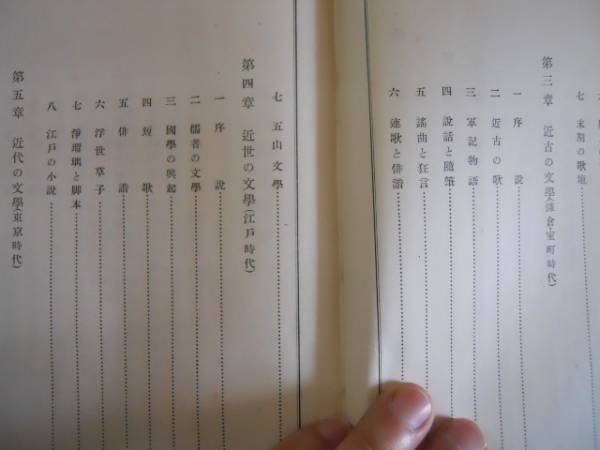 七 末期の歌壇
第三章 近古の文學(鎌倉・室町時代)
一 序說
二 近古の歌
三 軍記物語
四 說話と隨筆
五 謠曲と狂言
六 連歌と俳諧
七 五山文學
第四章 近世の文學(江戶時代)
一 序說
二 儒者の文學
三 國學の興起
四 短歌
五 俳諧
六 浮世草子
七 淨瑠璃と脚本
八 江戶の小說
第五章 近代の文學(東京時代)